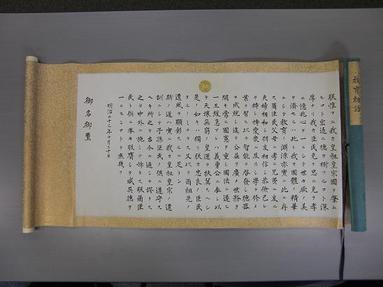 教育勅語
朕惟フニ我カ皇祖皇宗國ヲ肇ム
ルコト宏遠ニ德ヲ樹ツルコト深
厚ナリ我カ臣民克ク忠ニ克ク孝
ニ億兆心ヲ一ニシテ世世厥ノ美
ヲ濟セルハ此レ我カ國體ノ精華
ニシテ教育ノ淵源亦實ニ此ニ存
ス爾臣民父母ニ孝ニ兄弟ニ友ニ
夫婦相和シ朋友相信シ恭儉己レ
ヲ持シ博愛衆ニ及ホシ學ヲ修メ
業ヲ習ヒ以テ智能ヲ啓發シ德器
ヲ成就シ進テ公益ヲ廣メ世務ヲ
開キ常ニ國憲ヲ重シ國法ニ遵ヒ
一旦緩急アレハ義勇公ニ奉シ以
テ天壤無窮ノ皇運ヲ扶翼スヘシ
是ノ如キハ獨リ朕カ忠良ノ臣民
タルノミナラス又以テ爾祖先ノ
遺風ヲ顯彰スルニ足ラン
斯ノ道ハ實ニ我カ皇祖皇宗ノ遺
訓ニシテ子孫臣民ノ俱ニ遵守ス
ヘキ所之ヲ古今ニ通シテ謬ラス
之ヲ中外ニ施シテ悖ラス朕爾臣
民ト俱ニ拳拳服膺シテ咸其德ヲ
一ニセンコトヲ庶幾フ
明治二十三年十月三十日
御名御璽